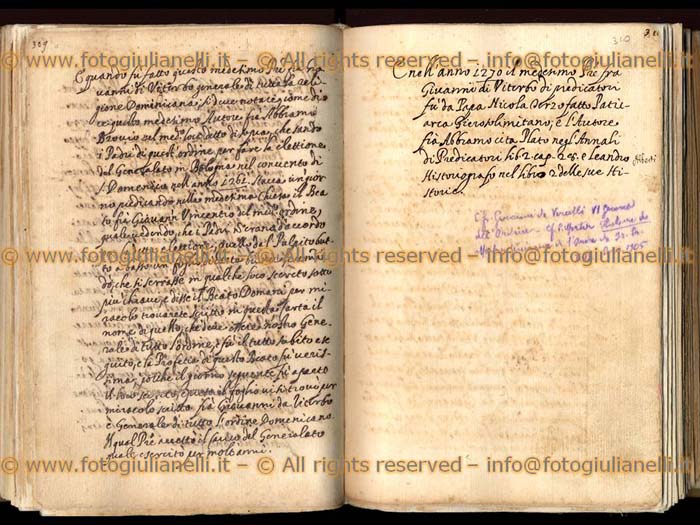 309
© www.fotogiulianelli.it – © All rights reserved – info@fotogiulianelli.it
E quando fu fatto questo medesimo Pre fra
vanni di Viterbo generale di tutta la reli-
gione Dominicana, si deve notare come di
ce questo medesimo Autore fra Abbramo
Brovio nel med.o loco ditto di sopra, che
i Padri di quest'ordine per fare la elettione
del Generalato in Bologna nel convento di
S. Domenico nell'anno 1262 stava un gior
no predicando nella medesima Chiesa il Bea
to fra Giovanni Vincentio del med.o ordine,
quale vedendo, che i Padri
elettione, quello del Pulpito
to a basso un foglio
do, che si serrasse in qualche loco secreto sotto
più chiave, e disse il Beato Domani per mi
racolo trovarete scritto in questa carta il
nome di quello, che deve essere nostro Gene
rale di tutto l'ordine, e fu il tutto subito ese
guito, e la Profetia di questo Beato fu veris
sima, poiche il giorno seguente fu aperto
il loco secreto, e questo foglio vi si trovò per
miracolo scritto fra Giovanni da Viterbo
è Generale di tutto l'ordine Domenicano.
Il qual Pre accettò il carico del Generalato
quale esercitò per molt'anni.
310
E nell'anno 1270 il medesimo Pre fra
Giovanni di Viterbo di predicatori
fù da Papa Nicola Terzo fatto Patri-
arca Gierosolimitano, e l'Autore
fra Abbramo cita Plato negl'Annali
di Predicatori lib. 2 cap. 28. e Leandro
Alberti
Historiografo nel libro 2 delle sue Hi-
storie.
Cf. de Vercelli VI
dell'Ordine. Cf. P. Mortier Histoire des
Maîtres Généraux de l'Ordre de
1905
© www.fotogiulianelli.it – © All rights reserved – info@fotogiulianelli.it
© www.fotogiulianelli.it – © All rights reserved – info@fotogiulianelli.it